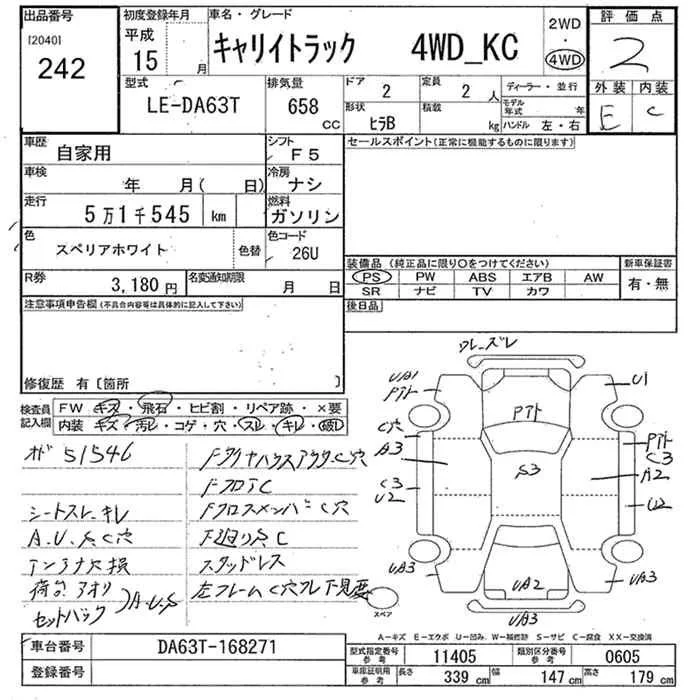 出品番号
[2040]
242
初度登録年月
平成
15 月
車名・グレード
キャリイトラック 4WD_KC
2WD
・
4WD
評価点
2
外装 内装
E C
型式
LE-DA63T
排気量
658
CC
ドア
2
定員
2 人
形状
ヒラB
積載
kg
ディーラー・並行
モデル年式 年
ハンドル 左・右
車歴
自家用
シフト
F5
車検
年 月( 日)
冷房
ナシ
走行
5万1千545 km
燃料
ガソリン
色
スペリアホワイト
色替
色コード
26U
R券
3,180 円
名変通知期限
月 日
セールスポイント(正常に機能するものに限ります)
装備品 (純正品に限り〇をつけてください)
PS PW ABS エアB AW
SR ナビ TV カワ
新車保証書
有・無
後日品
注意事項申告欄(不具合内容等は具体的に記入して下さい)
修復歴 有〔箇所 〕
検査員記入欄
FW キズ・飛石・ヒビ割・リペア跡・×要
内装 キズ・汚レ・コゲ・穴・スレ・キレ・破レ
メーター 51546
シートスレ、キレ
A.U.S.C穴
アンテナ欠損
荷台アオリ
セットバック
A.U.S
FフロアC
FクロスメンバーC穴
F廻りSC
スタッドレス
左フレームC穴
ワレ、ズレ
UA1
Pアト
U1
Pアト
C穴
A3
C3
U2
S3
Pアト
C3
A2
U2
UA3
UA2
UA3
UA3
スペア
A-キズ E-エクボ U-凹み、W-補修跡 S-サビ C-腐食 XX-交換済
車台番号
DA63T-168271
登録番号
型式指定番号
参考
11405
類別区分番号
参考
0605
車庫証明用
参考
長さ 339 cm 幅 147 cm 高さ 179 cm